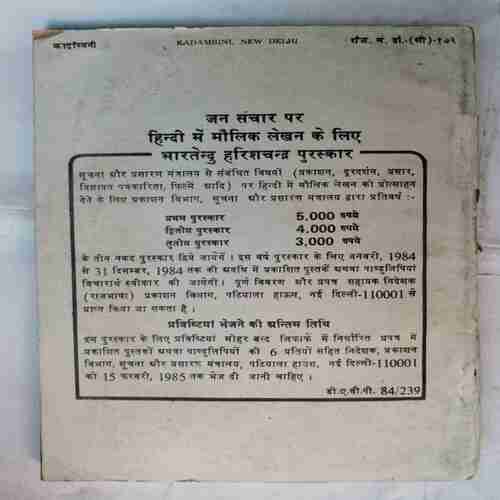 कादम्बिनी
KADAMBINI, NEW DELHI
रजि. नं. डी.-(सी)-१०२
जन संचार पर
हिन्दी में मौलिक लेखन के लिए
भारतेन्दु हरिशचन्द्र पुरस्कार
सूचना और प्रसारण मंत्रालय से संबंधित विषयों (प्रकाशन, दूरदर्शन, प्रसार,
विज्ञापन पत्रकारिता, फिल्में आदि) पर हिन्दी में मौलिक लेखन को प्रोत्साहन
देने के लिए प्रकाशन विभाग, सूचना और प्रसारण मंत्रालय द्वारा प्रतिवर्ष :-
प्रथम पुरस्कार 5,000 रुपये
द्वितीय पुरस्कार 4,000 रुपये
तृतीय पुरस्कार 3,000 रुपये
के तीन नकद पुरस्कार दिये जायेंगे । इस वर्ष पुरस्कार के लिए जनवरी, 1984
से 31 दिसम्बर, 1984 तक की अवधि में प्रकाशित पुस्तकें अथवा पाण्डुलिपियां
विचारार्थ स्वीकार की जायेंगी । पूर्ण विवरण और प्रपत्र सहायक निदेशक
(राजभाषा) प्रकाशन विभाग, पटियाला हाऊस, नई दिल्ली-110001 से
प्राप्त किया जा सकता है ।
प्रविष्टियां भेजने की अन्तिम तिथि
इस पुरस्कार के लिए प्रविष्टियां मोहर बन्द लिफाफे में निर्धारित प्रपत्र में
प्रकाशित पुस्तकों अथवा पाण्डुलिपियों की 6 प्रतियों सहित निदेशक, प्रकाशन
विभाग, सूचना और प्रसारण मंत्रालय, पटियाला हाउस, नई दिल्ली-110001
को 15 फरवरी, 1985 तक भेज दी जानी चाहिए ।
डी.ए.वी.पी. 84/239